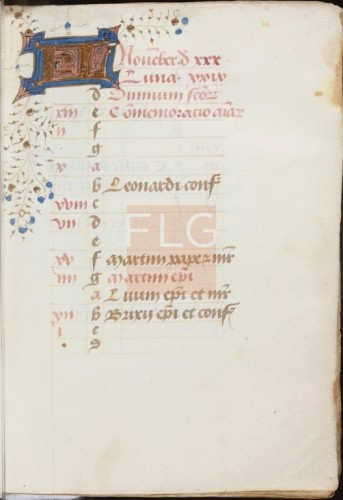 KL Nouēber d xxx
Luna xxix
d Omnium sctōꝝ
xiii e Cōmemoracio aīaꝝ
ii f
g
x a
b Leonardi conf
xviii c
vii d
e
xv f Martini pape z mr̄
iiii g Martini epī
a Liuini epī et mr̄
xii b Brixij epī et conf
i c
d
FLG